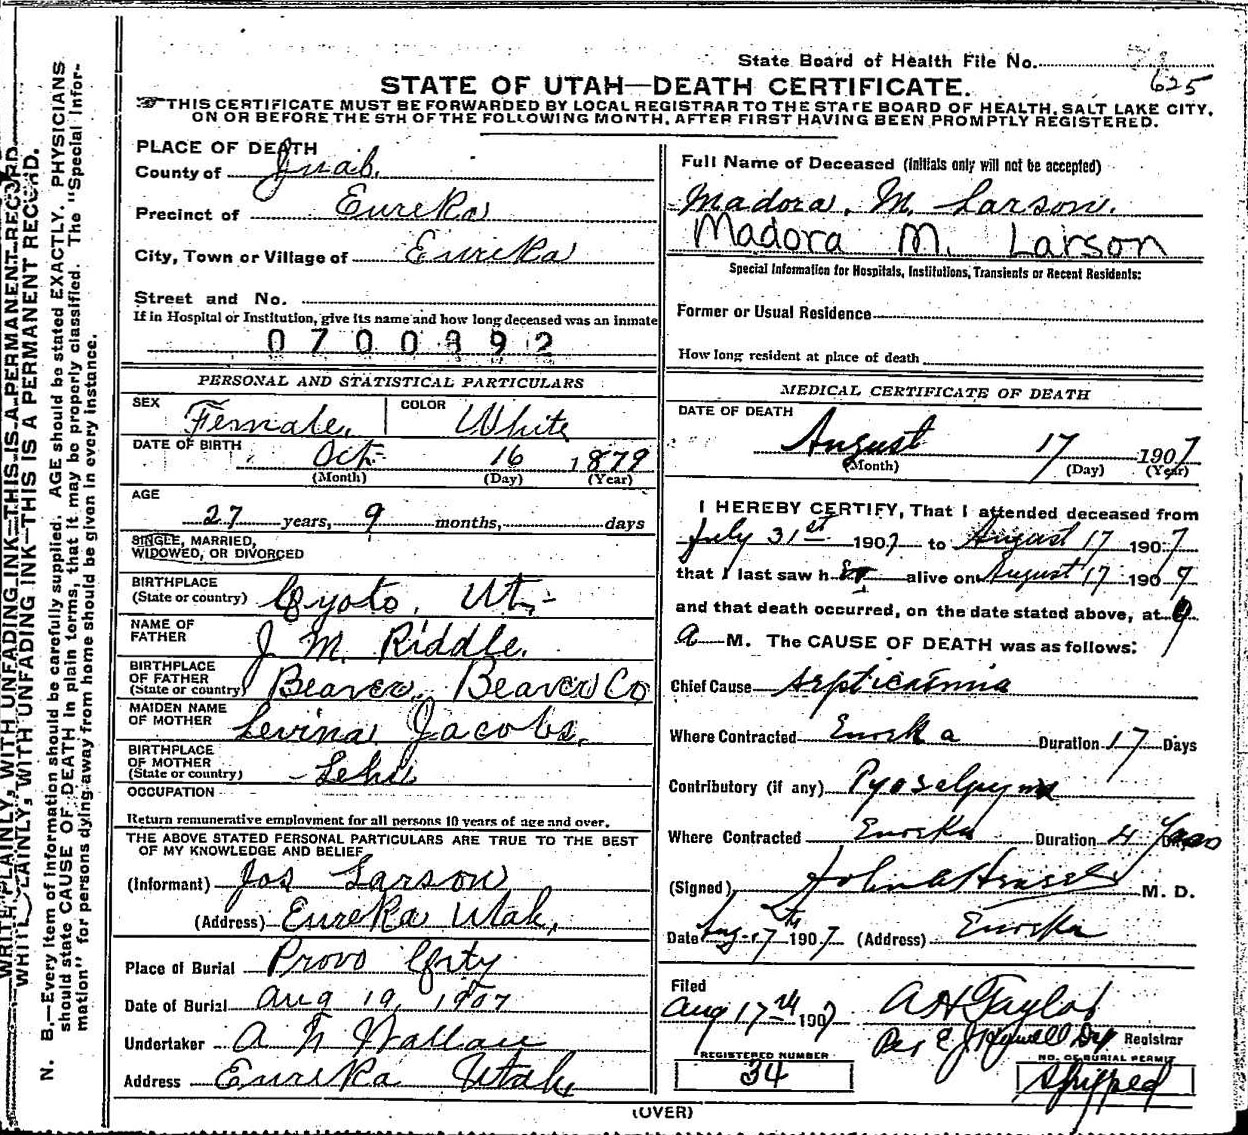 State Board of Health File No.
625
STATE OF UTAH—DEATH CERTIFICATE.
THIS CERTIFICATE MUST BE FORWARDED BY LOCAL REGISTRAR TO THE STATE BOARD OF HEALTH, SALT LAKE CITY,
ON OR BEFORE THE 5TH OF THE FOLLOWING MONTH, AFTER FIRST HAVING BEEN PROMPTLY REGISTERED.
PLACE OF DEATH
County of Juab.
Precinct of Eureka
City, Town or Village of Eureka
Street and No.
If in Hospital or Institution, give its name and how long deceased was an inmate
0700892
PERSONAL AND STATISTICAL PARTICULARS
SEX Female, COLOR White
DATE OF BIRTH Oct- 16 1879
(Month) (Day) (Year)
AGE
27 years, 9 months, days
SINGLE, MARRIED,
WIDOWED, OR DIVORCED
BIRTHPLACE
(State or country) Cyoto, Ut,-
NAME OF
FATHER J. M. Riddle.
BIRTHPLACE
OF FATHER
(State or country) Beaver, Beaver Co
MAIDEN NAME
OF MOTHER Levina Jacobs,
BIRTHPLACE
OF MOTHER
(State or country) Lehi
OCCUPATION
Return remunerative employment for all persons 10 years of age and over.
THE ABOVE STATED PERSONAL PARTICULARS ARE TRUE TO THE BEST
OF MY KNOWLEDGE AND BELIEF
(Informant) Jos Larson
(Address) Eureka Utah,
Place of Burial Provo City
Date of Burial Aug 19, 1907
Undertaker A N Wallace
Address Eureka Utah
Full Name of Deceased (Initials only will not be accepted)
Madora. M. Larson.
Madora M. Larson
Special Information for Hospitals, Institutions, Transients or Recent Residents:
Former or Usual Residence
How long resident at place of death
MEDICAL CERTIFICATE OF DEATH
DATE OF DEATH
August 17 1907
(Month) (Day) (Year)
I HEREBY CERTIFY, That I attended deceased from
July 31st 1907 to August 17 1907
that I last saw her alive on August 17 1907
and that death occurred, on the date stated above, at 9
a M. The CAUSE OF DEATH was as follows:
Chief Cause Septicaemia
Where Contracted Eureka Duration 17 Days
Contributory (if any) Pyosalpynx
Where Contracted Eureka Duration 4 Years
(Signed) John M. D.
Date Aug 17 1907 (Address) Eureka
Filed
Aug 17th 1907 A H Taylor
Per E J Dy Registrar
REGISTERED NUMBER
34
NO. OF BURIAL PERMIT
Shipped
(OVER)
WRITE PLAINLY, WITH UNFADING INK—THIS IS A PERMANENT RECORD.
WRITE PLAINLY, WITH UNFADING INK—THIS IS A PERMANENT RECORD.
N. B.—Every item of information should be carefully supplied. AGE should be stated EXACTLY. PHYSICIANS
should state CAUSE OF DEATH in plain terms, that it may be properly classified. The "Special Infor-
mation" for persons dying away from home should be given in every instance.